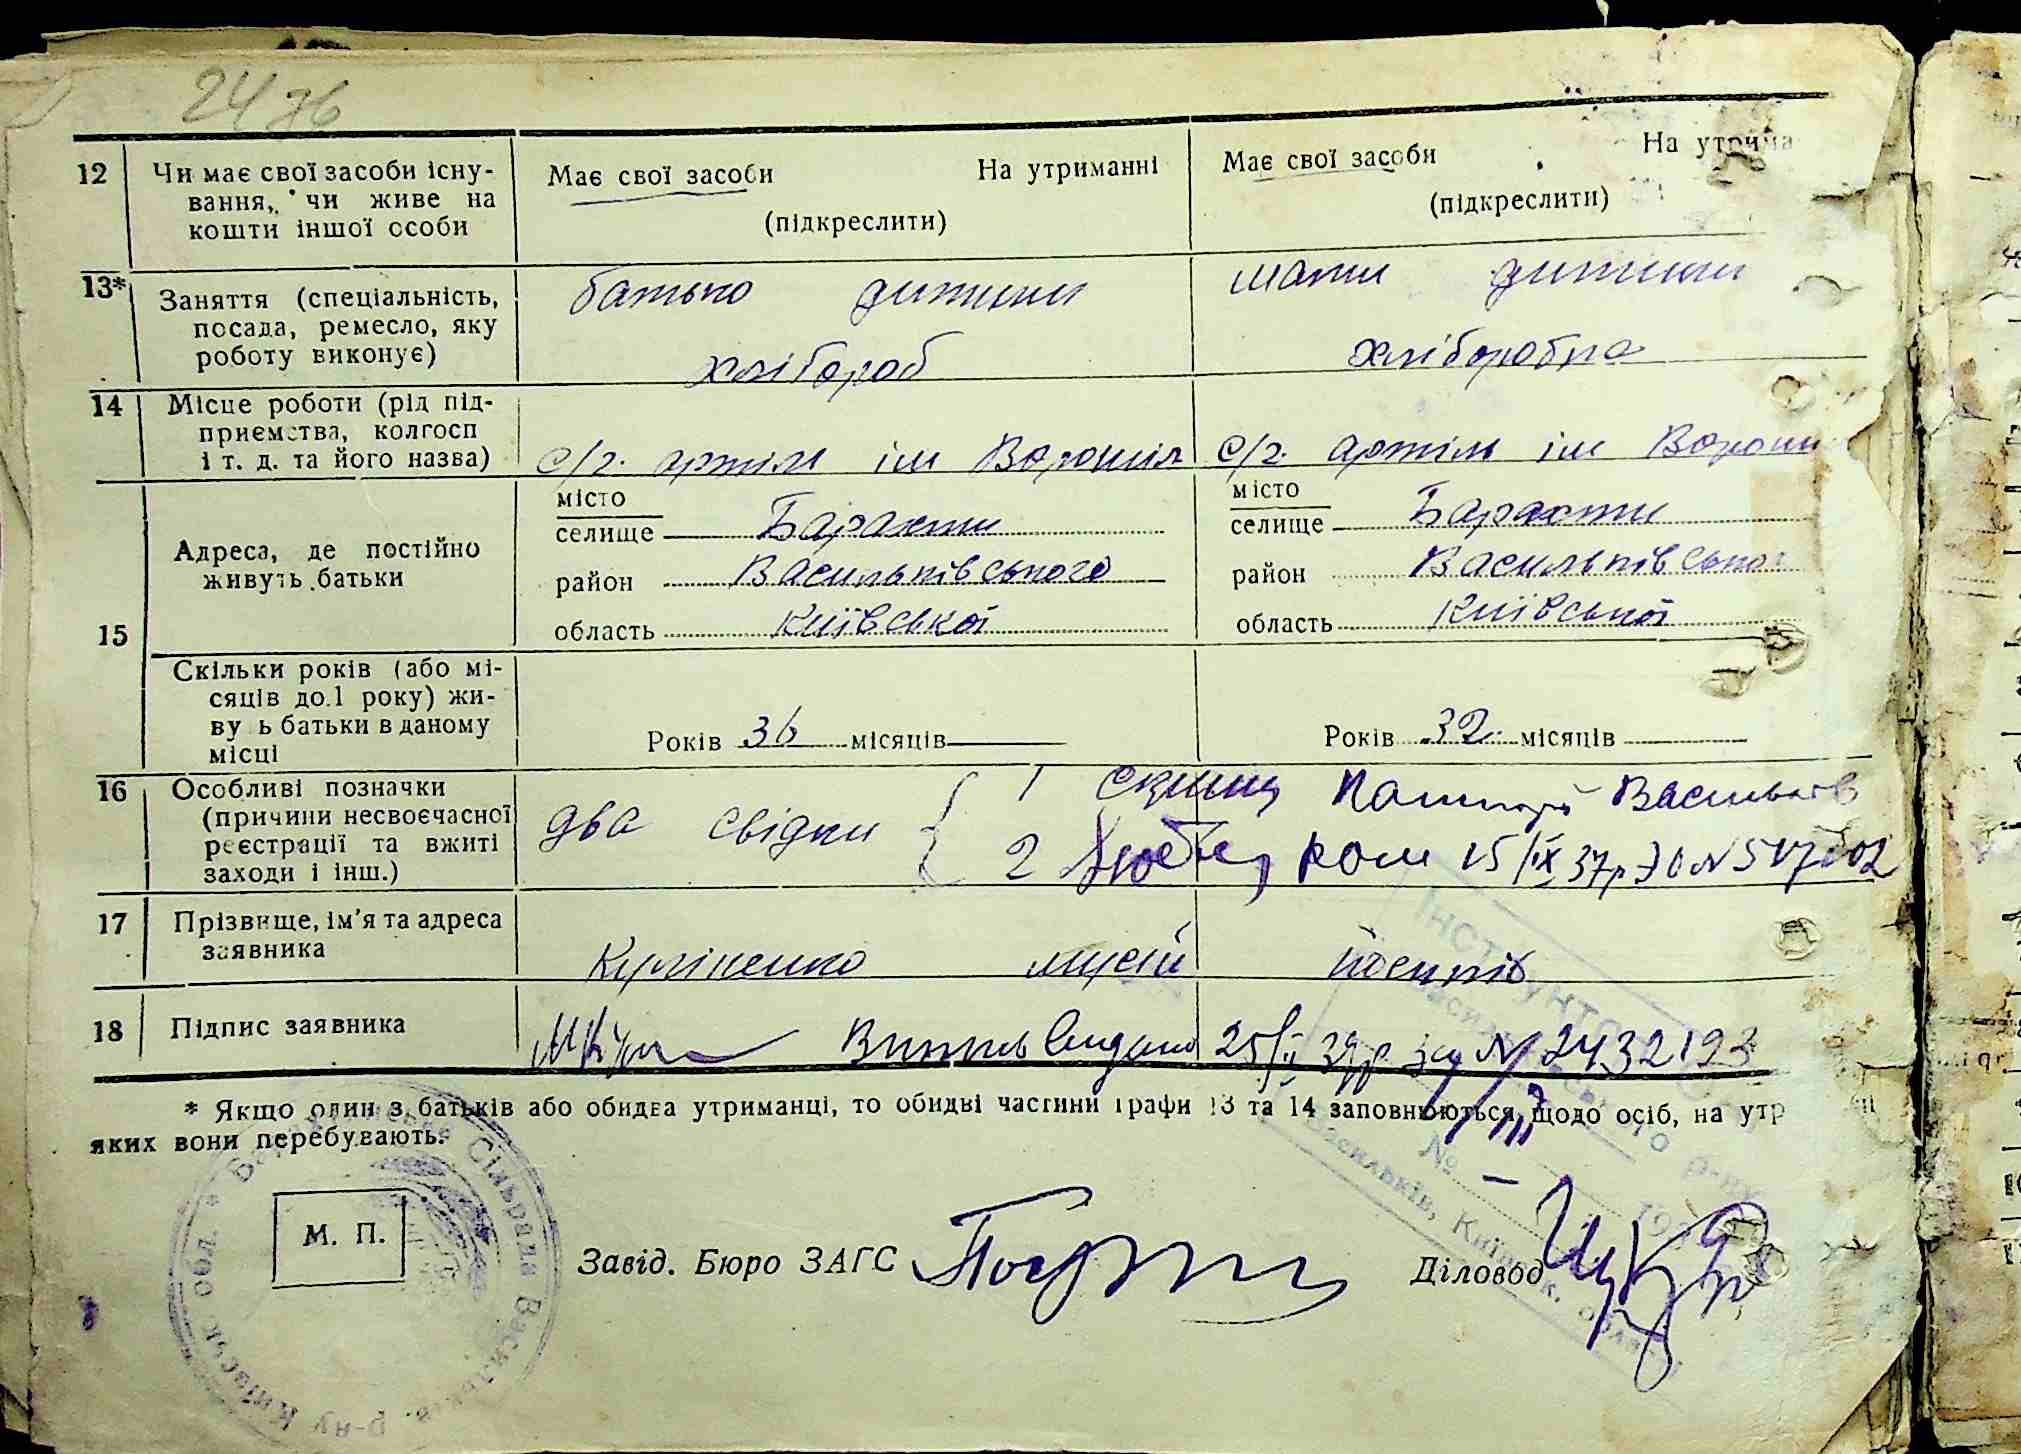 2476
12 Чи має свої засоби існу-
вання, чи живе на
кошти іншої особи
Має свої засоби На утриманні
(підкреслити)
Має свої засоби На утрима
(підкреслити)
13* Заняття (спеціальність,
посада, ремесло, яку
роботу виконує)
батько дитини
хлібороб
мати дитини
хліборобка
14 Місце роботи (рід під-
приємства, колгосп
і т. д. та його назва)
с/г. артіль ім Ворошил
с/г. артіль ім Ворош
15 Адреса, де постійно
живуть батьки
місто
селище Барахти
район Васильківського
область Київської
місто
селище Барахти
район Васильківського
область Київської
Скільки років (або мі-
сяців до 1 року) жи-
ву ь батьки в даному
місці
Років 36 місяців
Років 32 місяців
16 Особливі позначки
(причини несвоєчасної
реєстрації та вжиті
заходи і інш.)
два свідки
1 Паспорт Васильків
2 Ром 15/IX 37р ЭО №517602
17 Прізвище, ім'я та адреса
заявника
Куліненко Мусій Йосипів
18 Підпис заявника
25/ 39р за № 2432193
* Якщо один з батьків або обидва утриманці, то обидві частини графи 13 та 14 заповнюються щодо осіб, на утр
яких вони перебувають.
М. П.
Завід. Бюро ЗАГС
Діловод
Сільрада Васильків. р-ну Київськ обл. *
№ 19
Васильків, Київськ. обл.